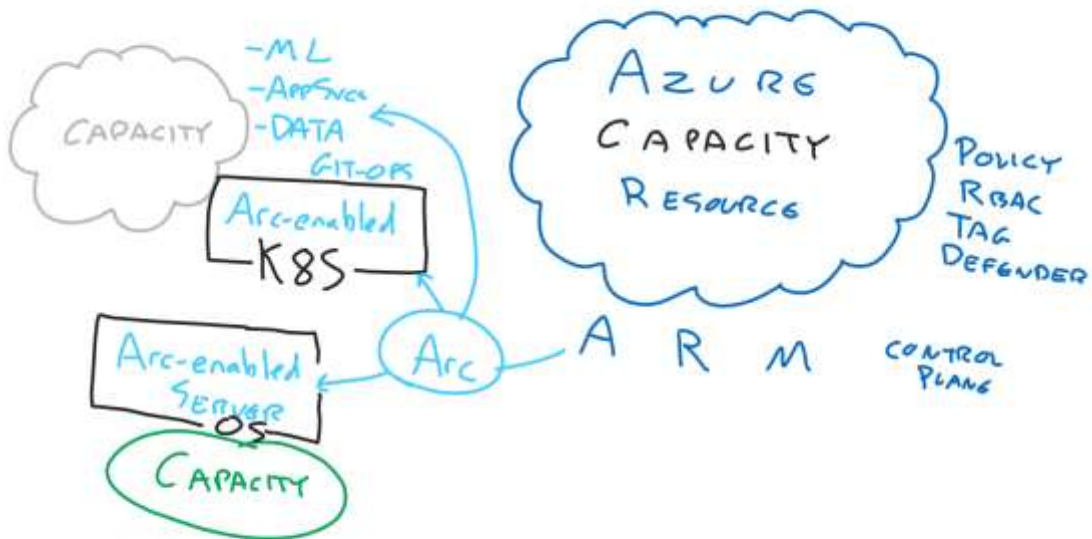 -ML
-AppSvcs
-DATA
GIT-OPS
CAPACITY
Arc-enabled
K8S
Arc-enabled
SERVER
OS
CAPACITY
Arc
AZURE
CAPACITY
RESOURCE
POLICY
RBAC
TAG
DEFENDER
ARM
CONTROL
PLANE